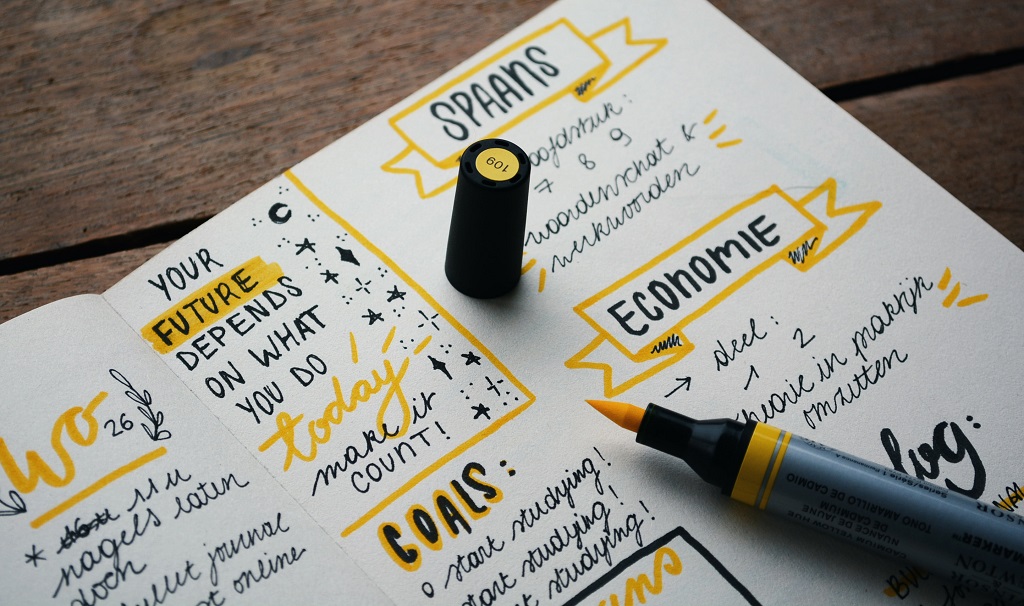 Wo
26
11 u
* nagels laten
doch
bullet journal
online
YOUR
FUTURE
DEPENDS
ON WHAT
YOU DO
today
make it
COUNT!
GOALS:
o start studying!
start studying!
start studying!
SPAANS
7 8 9
woordenschat &
werkwoorden
ECONOMIE
→ deel:
1 2
theorie in praktijk
omzetten
log:
109
Series/Série
CADMIUM YELLOW HUE
NUANCE DE JAUNE
DE CADMIUM
TONO AMARILLO DE CADMIO